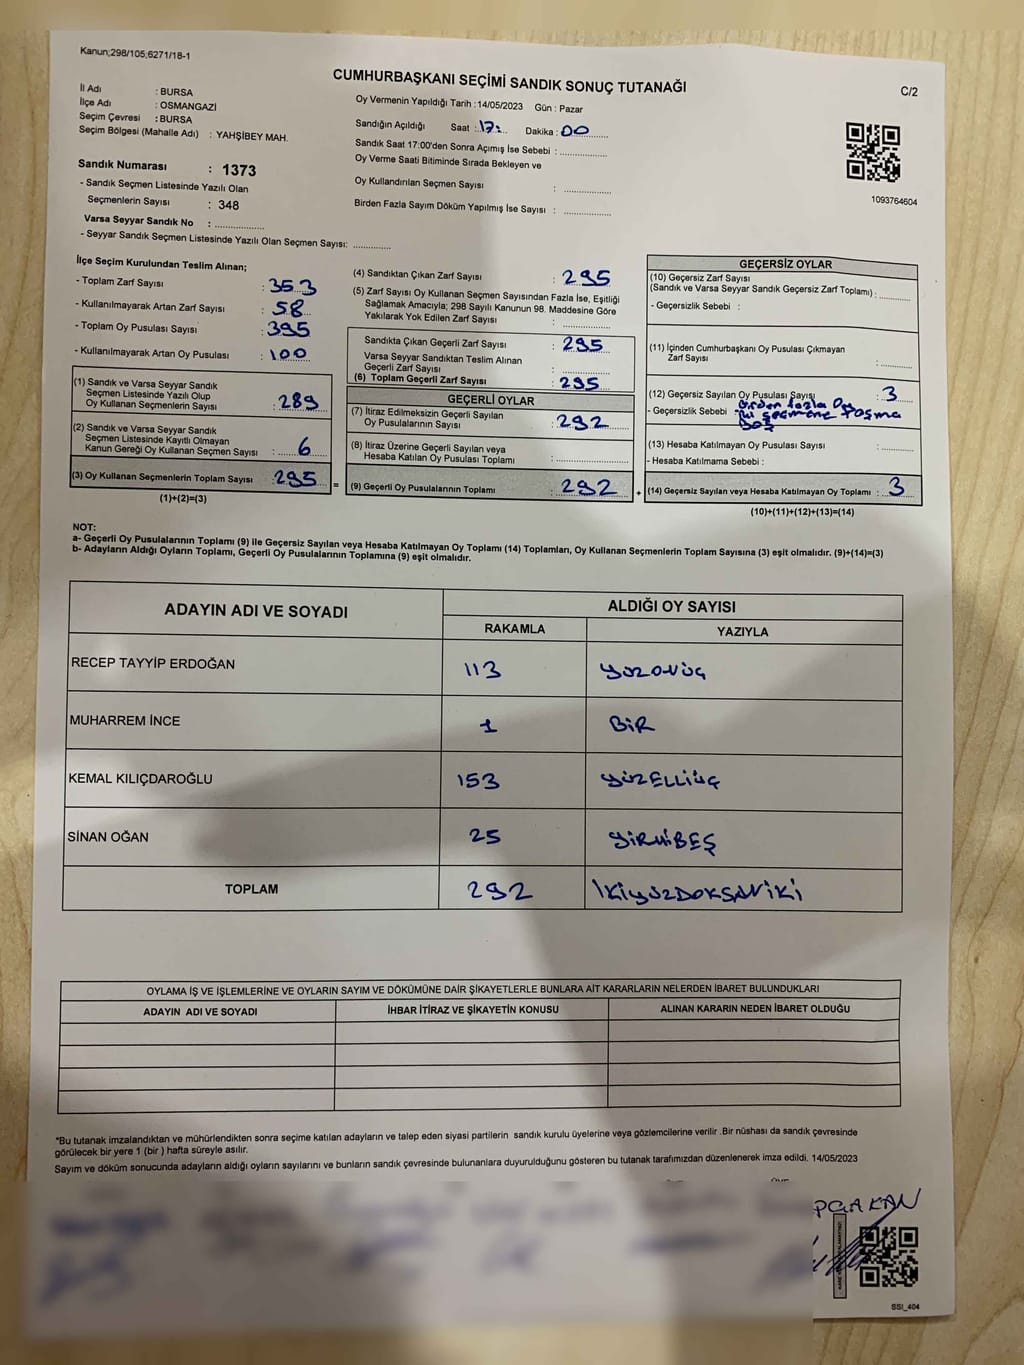 Kanun;298/105;6271/18-1
CUMHURBAŞKANI SEÇİMİ SANDIK SONUÇ TUTANAĞI
C/2
İl Adı : BURSA
İlçe Adı : OSMANGAZİ
Seçim Çevresi : BURSA
Seçim Bölgesi (Mahalle Adı) : YAHŞİBEY MAH.
Sandık Numarası : 1373
- Sandık Seçmen Listesinde Yazılı Olan
Seçmenlerin Sayısı : 348
Varsa Seyyar Sandık No :
- Seyyar Sandık Seçmen Listesinde Yazılı Olan Seçmen Sayısı:
Oy Vermenin Yapıldığı Tarih : 14/05/2023 Gün : Pazar
Sandığın Açıldığı Saat : 17: Dakika : 00
Sandık Saat 17:00'den Sonra Açımış İse Sebebi :
Oy Verme Saati Bitiminde Sırada Bekleyen ve
Oy Kullandırılan Seçmen Sayısı :
Birden Fazla Sayım Döküm Yapılmış İse Sayısı :
1093764604
İlçe Seçim Kurulundan Teslim Alınan;
- Toplam Zarf Sayısı : 353
- Kullanılmayarak Artan Zarf Sayısı : 58
- Toplam Oy Pusulası Sayısı : 395
- Kullanılmayarak Artan Oy Pusulası : 100
(1) Sandık ve Varsa Seyyar Sandık
Seçmen Listesinde Yazılı Olup
Oy Kullanan Seçmenlerin Sayısı : 289
(2) Sandık ve Varsa Seyyar Sandık
Seçmen Listesinde Kayıtlı Olmayan
Kanun Gereği Oy Kullanan Seçmen Sayısı : 6
(3) Oy Kullanan Seçmenlerin Toplam Sayısı : 295
(1)+(2)=(3)
(4) Sandıktan Çıkan Zarf Sayısı : 295
(5) Zarf Sayısı Oy Kullanan Seçmen Sayısından Fazla İse, Eşitliği
Sağlamak Amacıyla; 298 Sayılı Kanunun 98. Maddesine Göre
Yakılarak Yok Edilen Zarf Sayısı :
Sandıkta Çıkan Geçerli Zarf Sayısı : 295
Varsa Seyyar Sandıktan Teslim Alınan
Geçerli Zarf Sayısı :
(6) Toplam Geçerli Zarf Sayısı : 295
GEÇERLİ OYLAR
(7) İtiraz Edilmeksizin Geçerli Sayılan
Oy Pusulalarının Sayısı : 292
(8) İtiraz Üzerine Geçerli Sayılan veya
Hesaba Katılan Oy Pusulası Toplamı :
= (9) Geçerli Oy Pusulalarının Toplamı : 292
GEÇERSİZ OYLAR
(10) Geçersiz Zarf Sayısı
(Sandık ve Varsa Seyyar Sandık Geçersiz Zarf Toplamı) :
- Geçersizlik Sebebi :
(11) İçinden Cumhurbaşkanı Oy Pusulası Çıkmayan
Zarf Sayısı :
(12) Geçersiz Sayılan Oy Pusulası Sayısı : 3
- Geçersizlik Sebebi : Birden fazla Oy
seçmene
Boş
(13) Hesaba Katılmayan Oy Pusulası Sayısı :
- Hesaba Katılmama Sebebi :
+ (14) Geçersiz Sayılan veya Hesaba Katılmayan Oy Toplamı : 3
(10)+(11)+(12)+(13)=(14)
NOT:
a- Geçerli Oy Pusulalarının Toplamı (9) ile Geçersiz Sayılan veya Hesaba Katılmayan Oy Toplamı (14) Toplamları, Oy Kullanan Seçmenlerin Toplam Sayısına (3) eşit olmalıdır. (9)+(14)=(3)
b- Adayların Aldığı Oyların Toplamı, Geçerli Oy Pusulalarının Toplamına (9) eşit olmalıdır.
ADAYIN ADI VE SOYADI ALDIĞI OY SAYISI
RAKAMLA YAZIYLA
RECEP TAYYİP ERDOĞAN 113 YÜZONÜÇ
MUHARREM İNCE 1 BİR
KEMAL KILIÇDAROĞLU 153 YÜZELLİÜÇ
SİNAN OĞAN 25 YİRMİBEŞ
TOPLAM 292 İKİYÜZDOKSANİKİ
OYLAMA İŞ VE İŞLEMLERİNE VE OYLARIN SAYIM VE DÖKÜMÜNE DAİR ŞİKAYETLERLE BUNLARA AİT KARARLARIN NELERDEN İBARET BULUNDUKLARI
ADAYIN ADI VE SOYADI İHBAR İTİRAZ VE ŞİKAYETİN KONUSU ALINAN KARARIN NEDEN İBARET OLDUĞU
*Bu tutanak imzalandıktan ve mühürlendikten sonra seçime katılan adayların ve talep eden siyasi partilerin sandık kurulu üyelerine veya gözlemcilerine verilir .Bir nüshası da sandık çevresinde
görülecek bir yere 1 (bir ) hafta süreyle asılır.
Sayım ve döküm sonucunda adayların aldığı oyların sayılarını ve bunların sandık çevresinde bulunanlara duyurulduğunu gösteren bu tutanak tarafımızdan düzenlenerek imza edildi. 14/05/2023
SSI_404